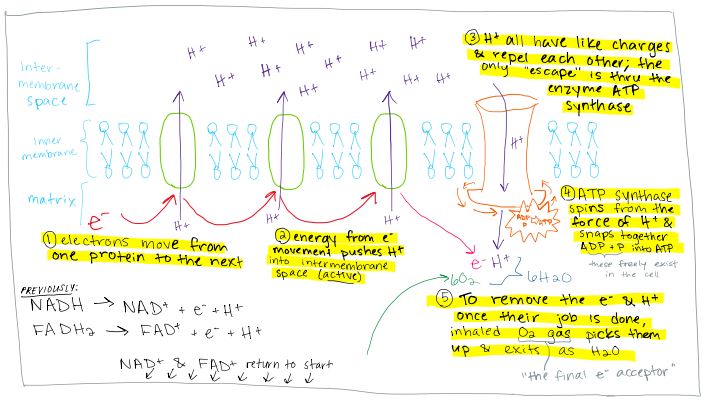 H+ H+ H+ H+ H+ H+
H+ H+ H+ H+ H+ H+ H+
Inter-
membrane
space
③ H+ all have like charges
& repel each other; the
only "escape" is thru the
enzyme ATP
synthase
inner
membrane
H+
matrix
e-
H+ H+ H+
ADP+
P
④ ATP synthase
spins from the
force of H+ &
snaps together
ADP + P into ATP
these freely exist
in the cell
① electrons move from
one protein to the next
② energy from e-
movement pushes H+
into intermembrane
space (active)
e- H+
6O2 6H2O
PREVIOUSLY:
NADH → NAD+ + e- + H+
FADH2 → FAD+ + e- + H+
NAD+ & FAD+ return to start
⑤ To remove the e- & H+
once their job is done,
inhaled O2 gas picks them
up & exits as H2O
"the final e- acceptor"